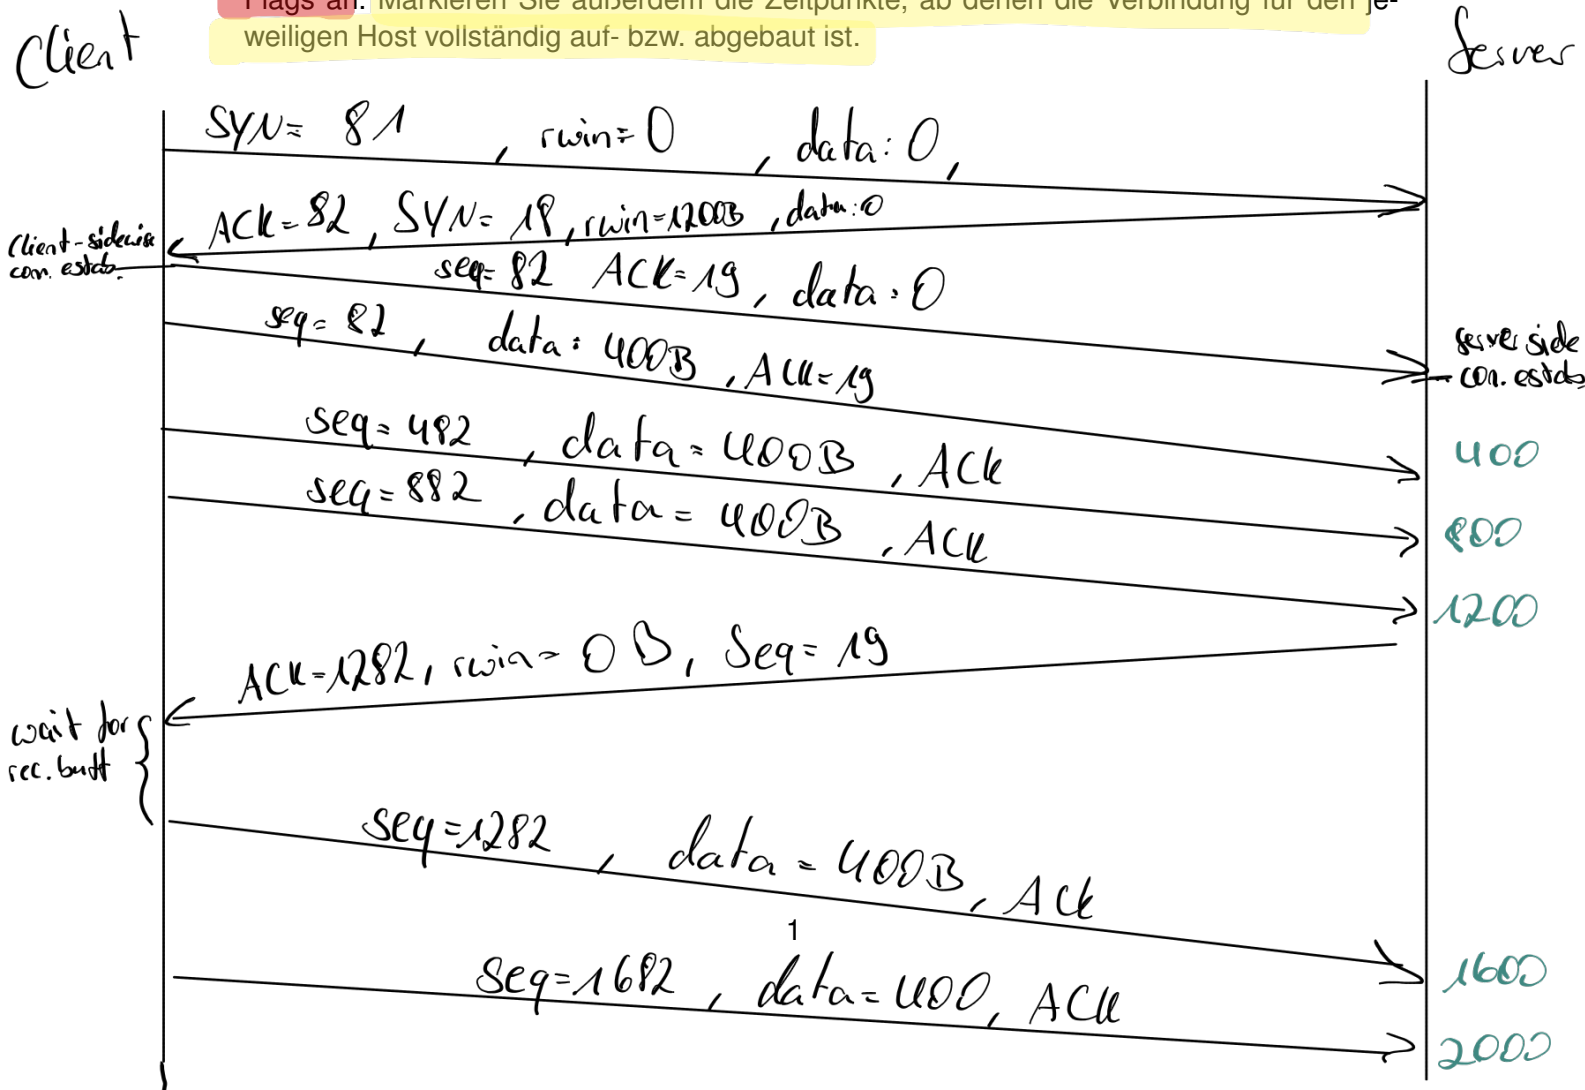 Flags an. Markieren Sie außerdem die Zeitpunkte, ab denen die Verbindung für den je-
weiligen Host vollständig auf- bzw. abgebaut ist.
Client
Server
SYN= 81 , rwin=0 , data: 0,
ACK=82, SYN=18, rwin=1200B, data:0
Client-sidewise
con. estab.
seq=82 ACK=19, data:0
seq=82, data: 400B, ACK=19
server side
con. estab
seq=482, data=400B, ACK
400
seq=882, data=400B, ACK
800
1200
ACK=1282, rwin=0B, Seq=19
wait for
rec. buff
seq=1282, data=400B, ACK
1
1600
Seq=1682, data=400, ACK
2000